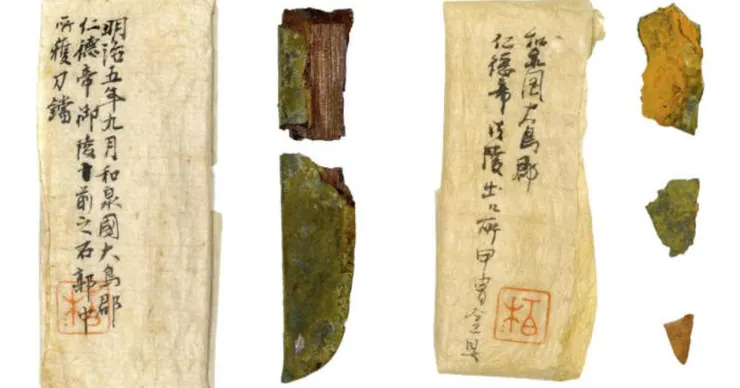 明治五年九月和泉國大鳥郡
仁德帝御陵前之石郭中
所獲刀鐺
和泉国大鳥郡
仁徳帝御陵出口所甲冑金具
栢
栢